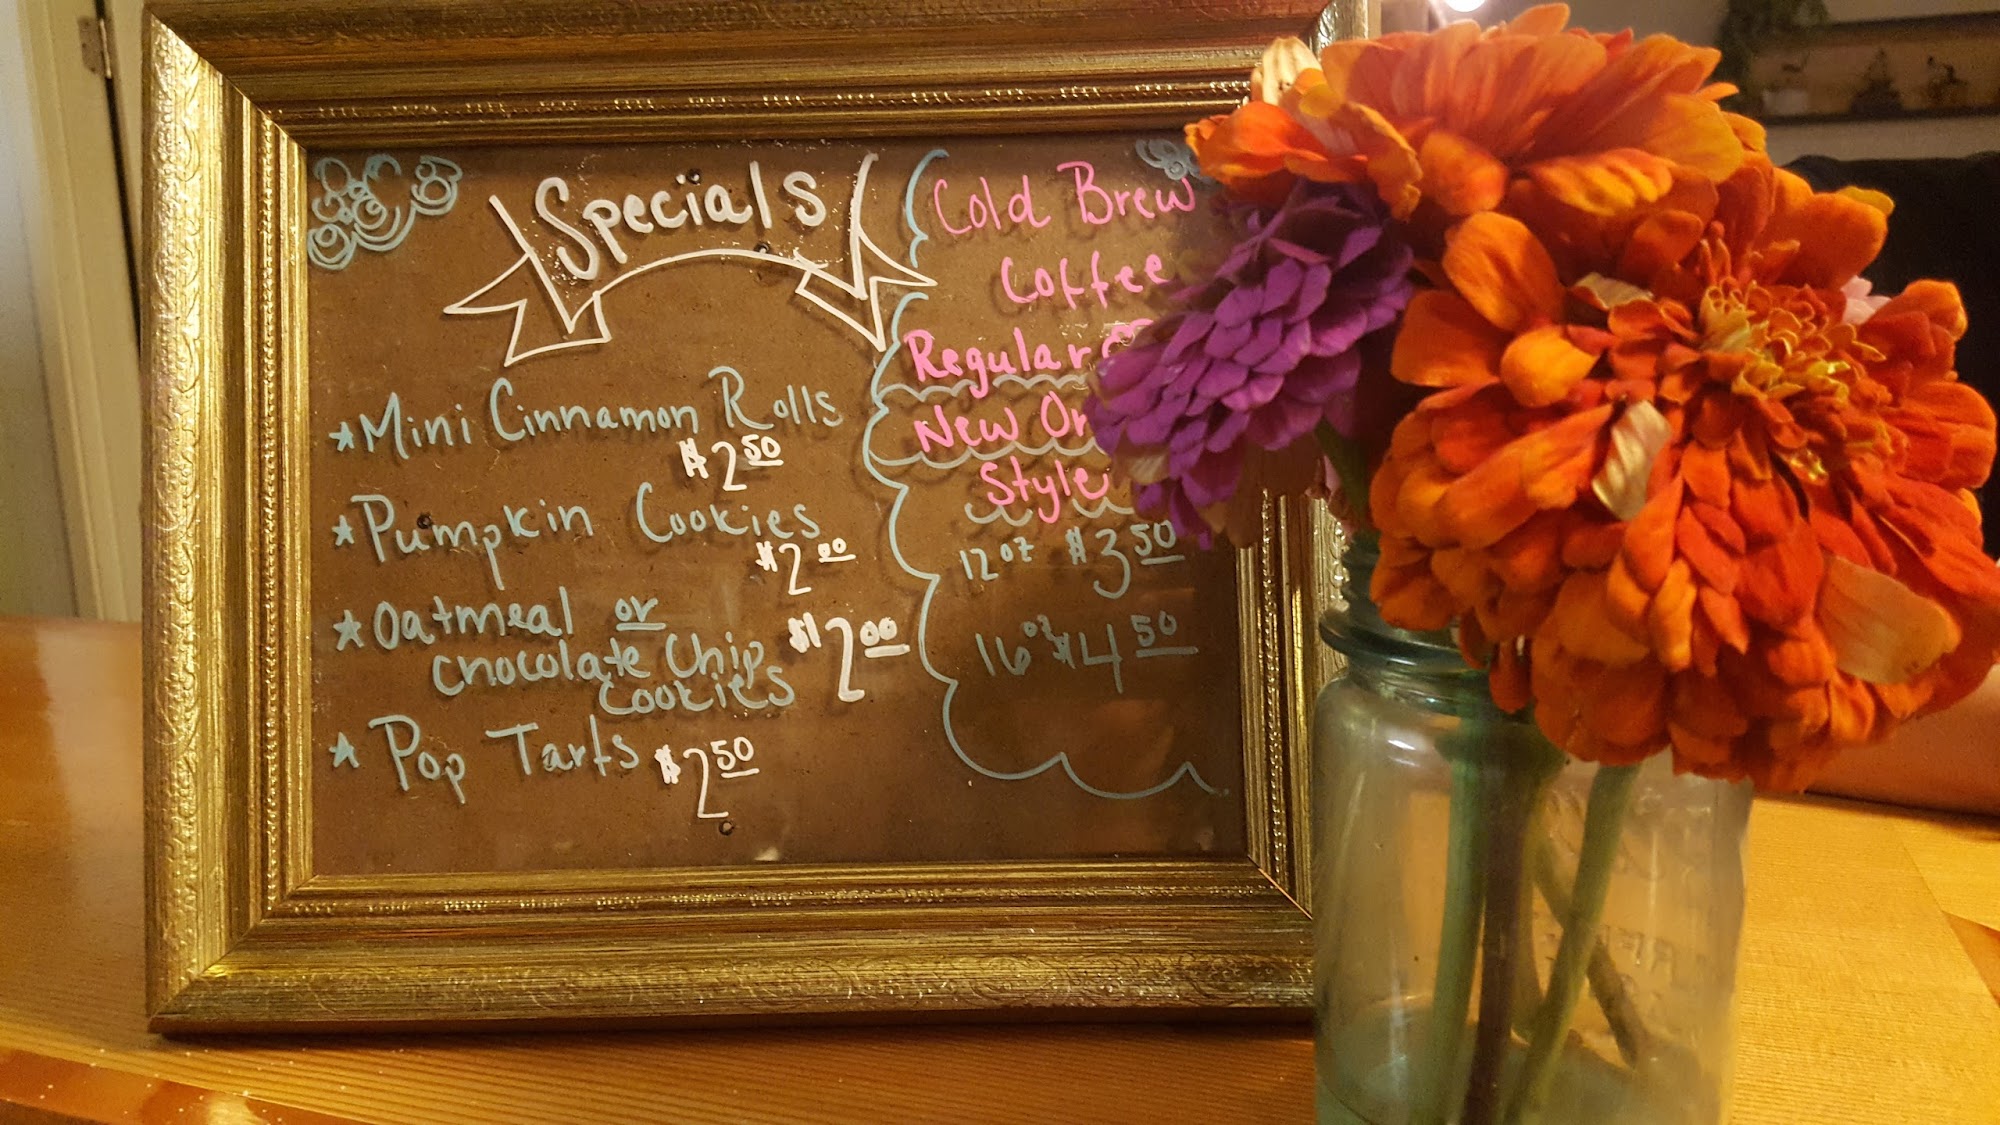 Specials
*Mini Cinnamon Rolls
$2.50
*Pumpkin Cookies
$2.00
*Oatmeal or
Chocolate Chip
Cookies
$2.00
*Pop Tarts $2.50
Cold Brew
Coffee
Regular
New
Style
12 oz $3.50
16 oz $4.50